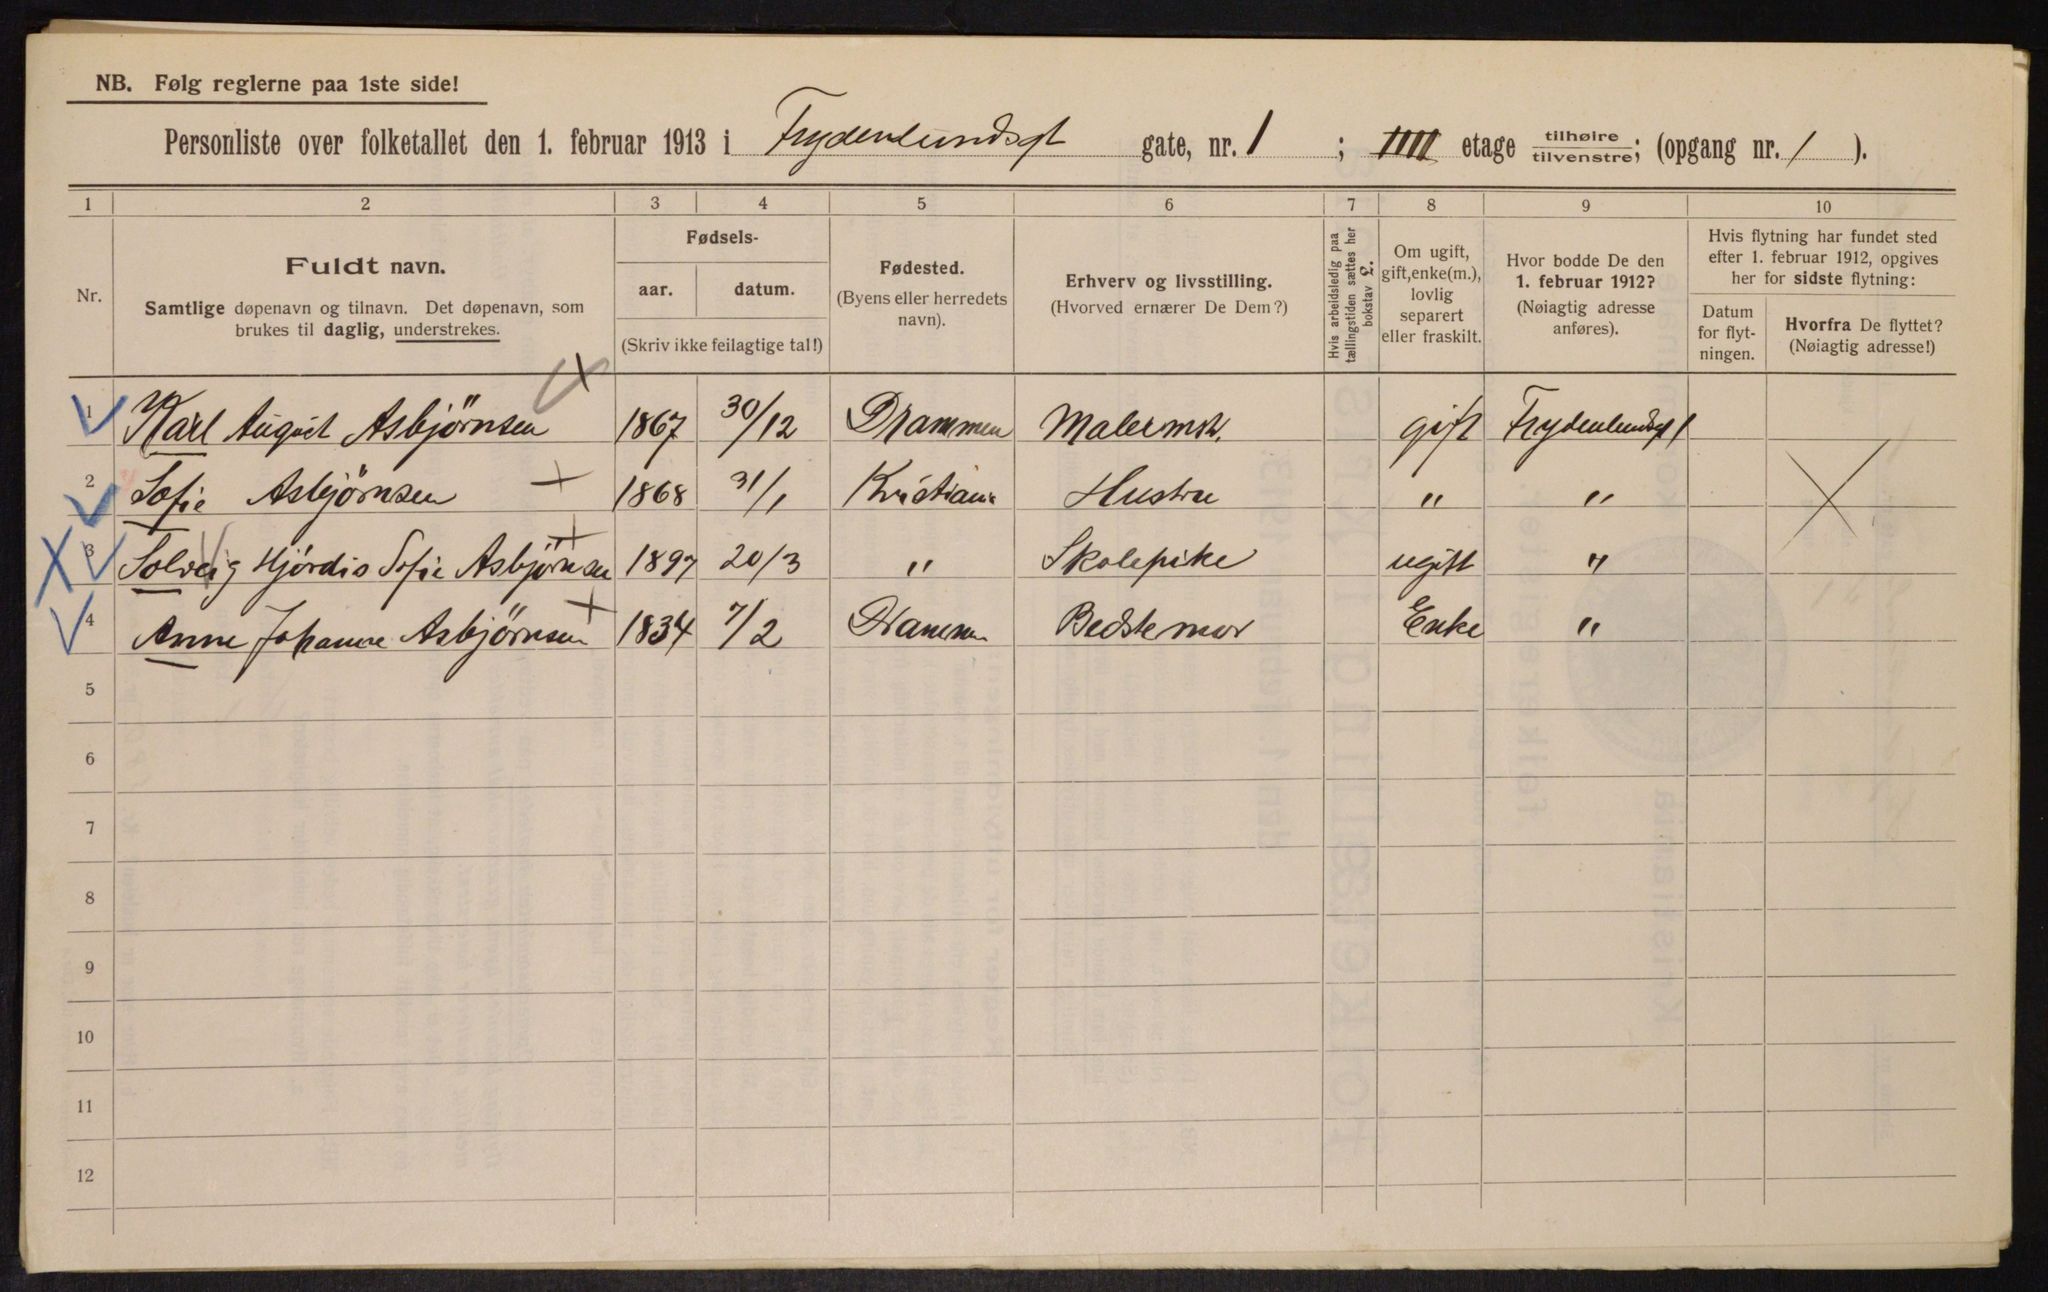 NB. Følg reglerne paa 1ste side!
Personliste over folketallet den 1. februar 1913 i Frydenlundsgt gate, nr. 1 ; IIII etage tilhøire/tilvenstre; (opgang nr. 1 ).
1 2 3 4 5 6 7 8 9 10
Nr.
Fuldt navn.
Samtlige døpenavn og tilnavn. Det døpenavn, som
brukes til daglig, understrekes.
Fødsels-
aar. datum.
(Skriv ikke feilagtige tal!)
Fødested.
(Byens eller herredets
navn).
Erhverv og livsstilling.
(Hvorved ernærer De Dem?)
Hvis arbeidsledig paa
tællingstiden sættes her
bokstav L.
Om ugift,
gift, enke(m.),
lovlig
separert
eller fraskilt.
Hvor bodde De den
1. februar 1912?
(Nøiagtig adresse
anføres).
Hvis flytning har fundet sted
efter 1. februar 1912, opgives
her for sidste flytning:
Datum
for flyt-
ningen.
Hvorfra De flyttet?
(Nøiagtig adresse!)
1 Karl August Asbjörnsen 1867 30/12 Drammen Malermstr. gift Frydenlundsgt 1
2 Sofie Asbjörnsen 1868 31/1 Kristiania Hustru " "
3 Solveig Hjördis Sofie Asbjörnsen 1897 20/3 " Skolepike ugift "
4 Anne Johanne Asbjörnsen 1834 7/2 Drammen Bedstemor Enke "
5
6
7
8
9
10
11
12